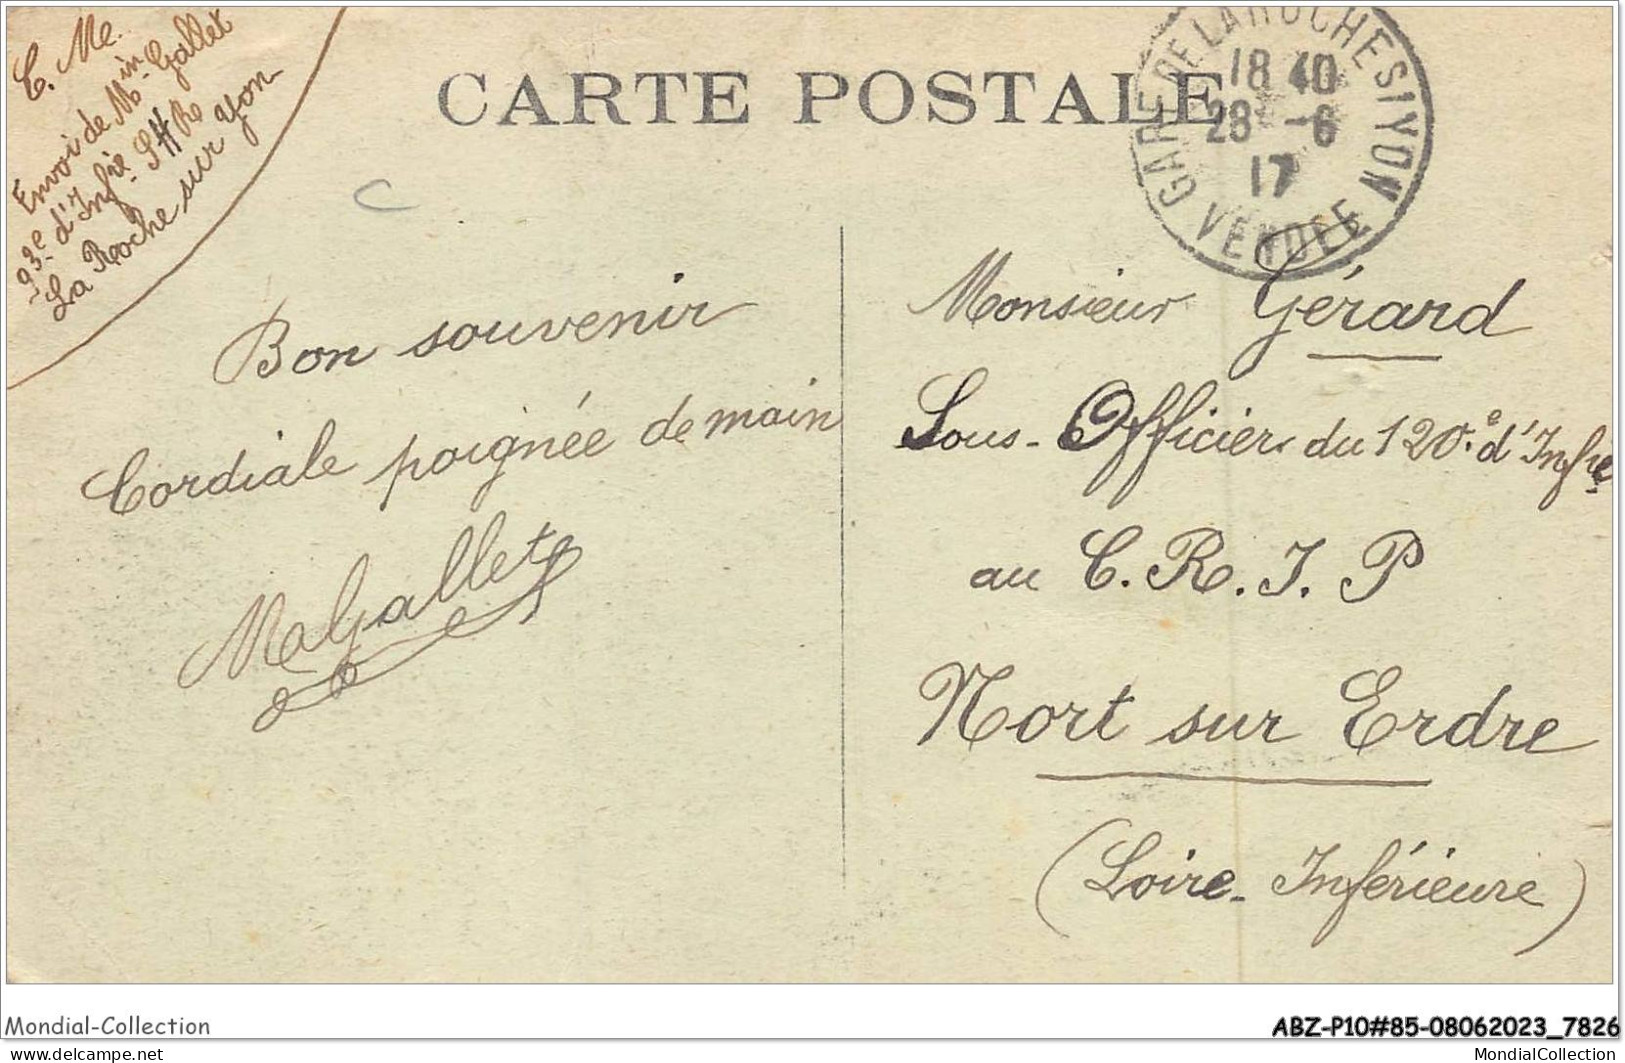 C. Me.
Envoi de Min Gallet
93e d'Infie SHR
La Roche sur yon
CARTE POSTALE
GARE DE LA ROCHE S YON
18 40
28 -6
17
VENDEE
Bon souvenir
Cordiale poignée de main
MGallet
Monsieur Gérard
Sous-Officier du 120e d'Infie
au C.R.I.P
Nort sur Erdre
(Loire-Inférieure)
Mondial-Collection
ABZ-P10#85-08062023_7826
https://www.delcampe.net
MondialCollection